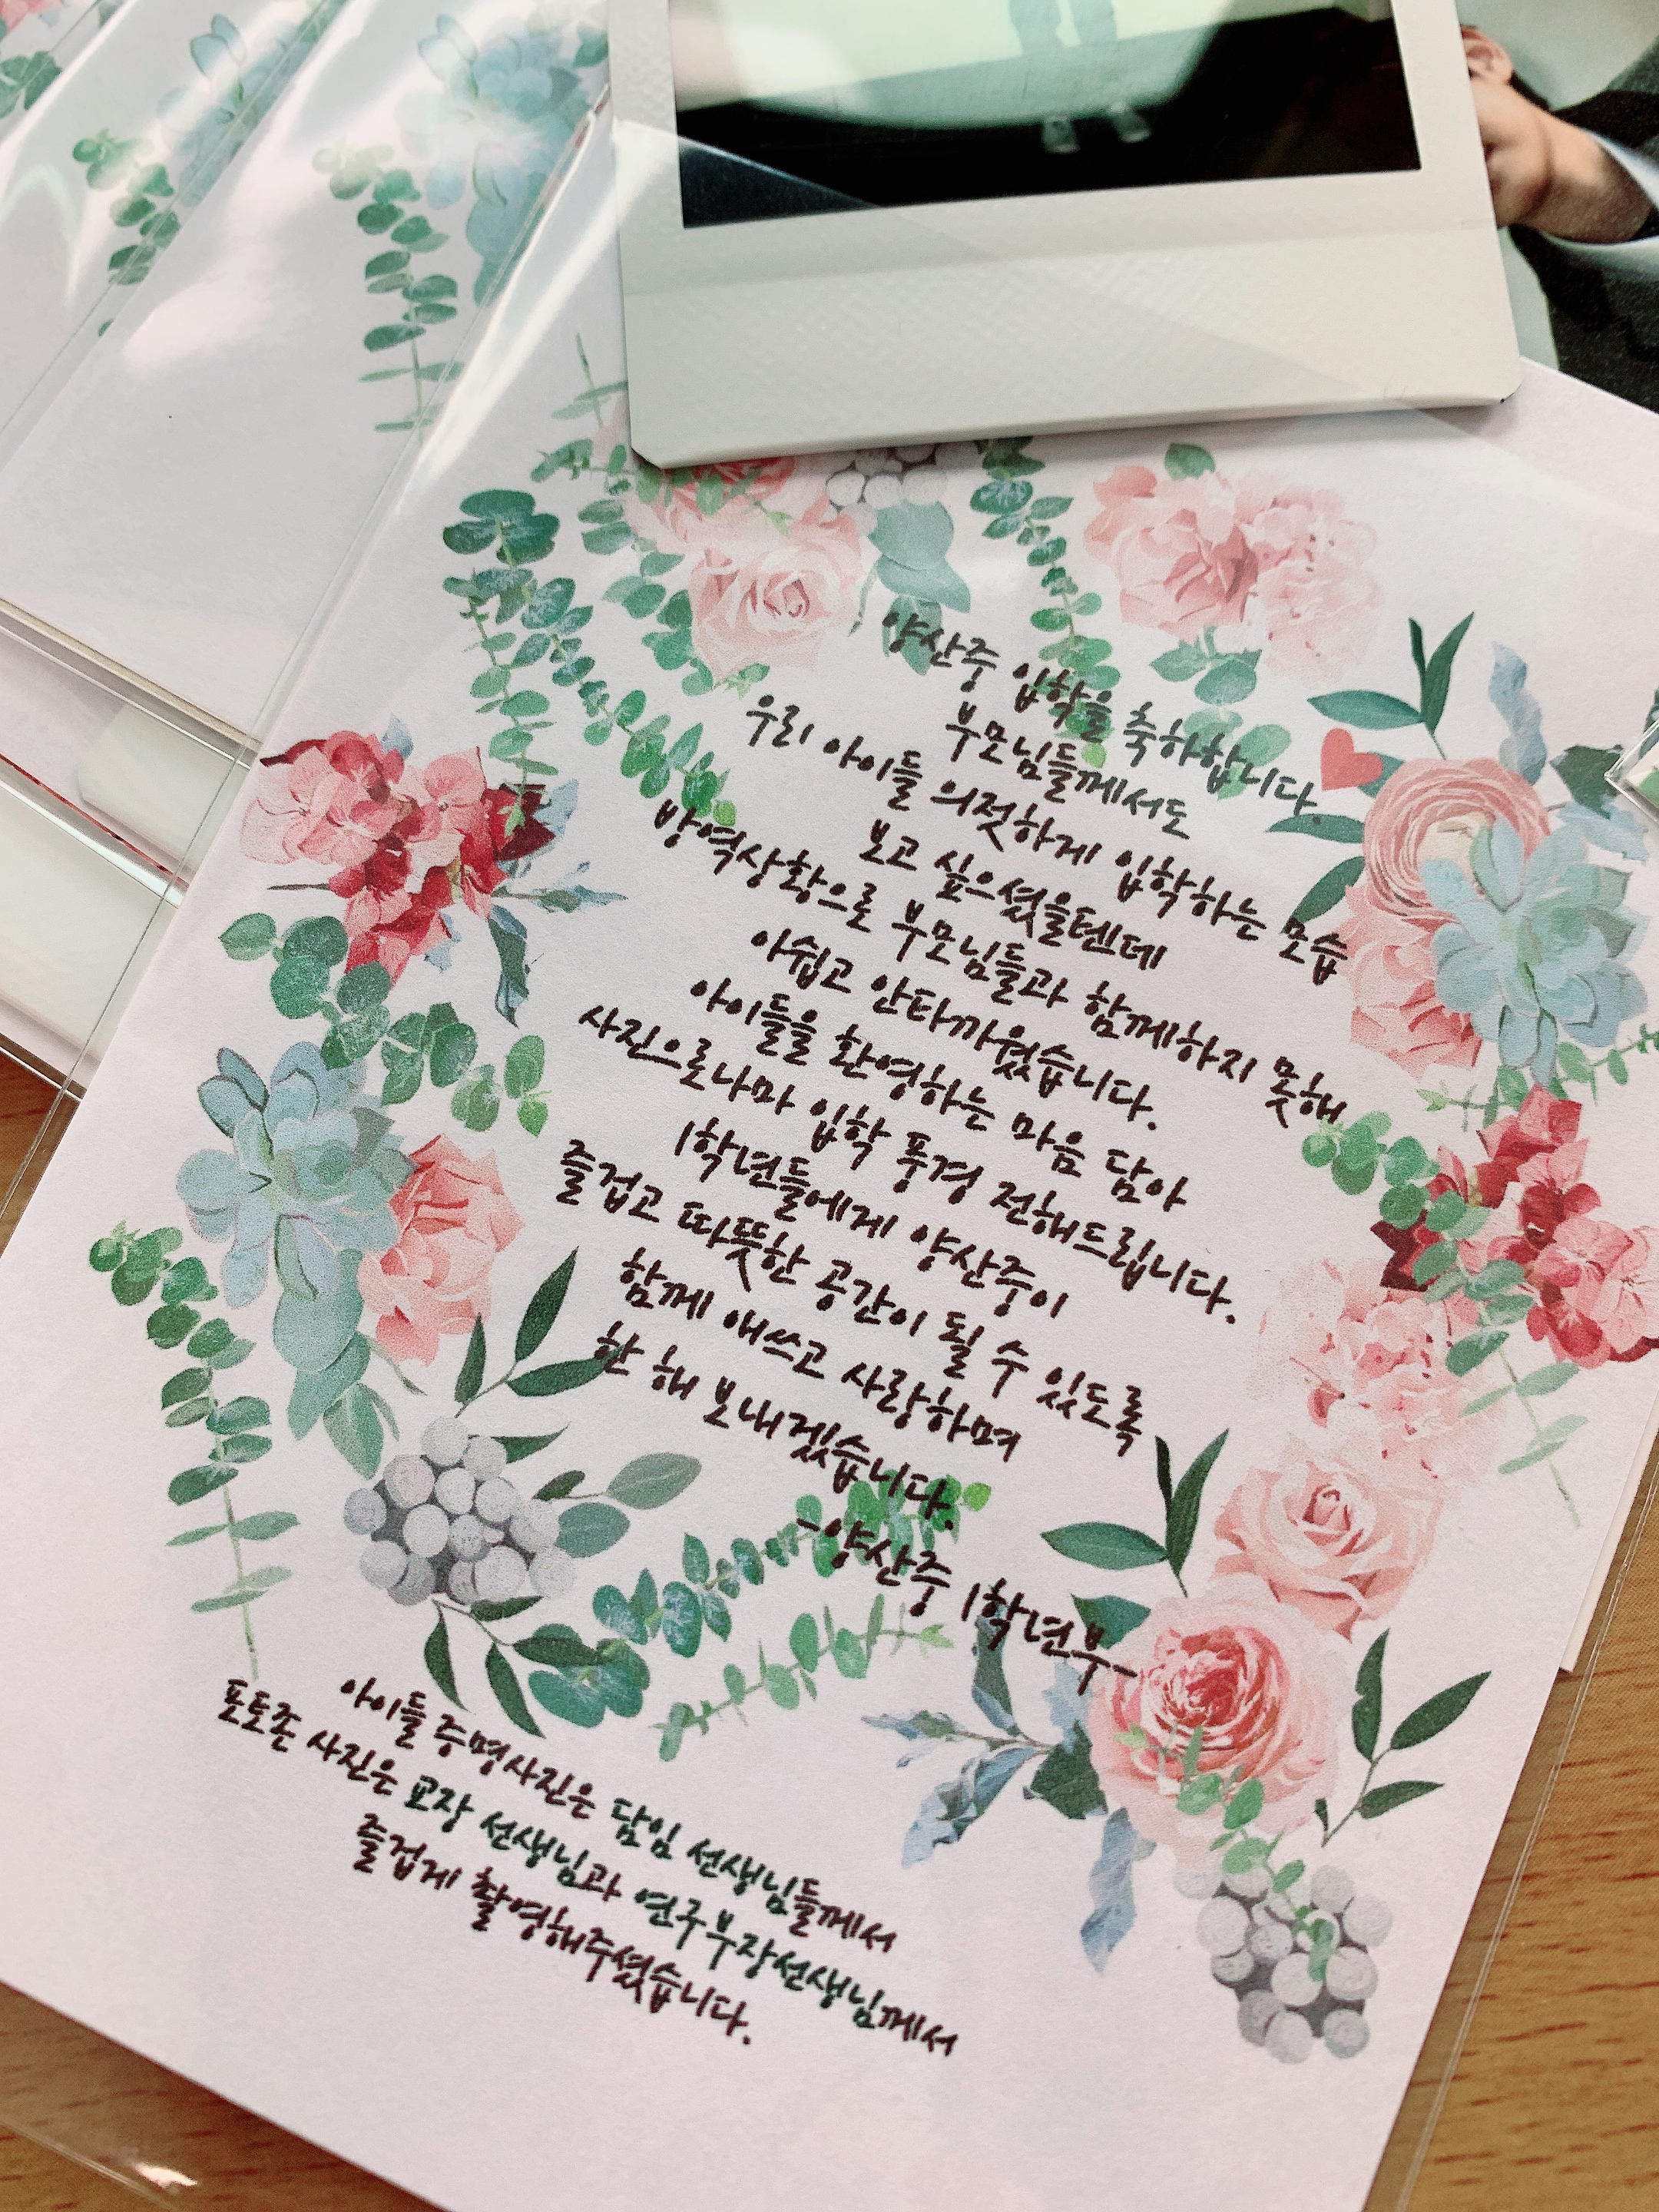 양산중 입학을 축하합니다.
부모님들께서도
우리 아이들 의젓하게 입학하는 모습
보고 싶으셨을텐데
방역상황으로 부모님들과 함께하지 못해
아쉽고 안타까웠습니다.
아이들을 환영하는 마음 담아
사진으로나마 입학 풍경 전해드립니다.
1학년들에게 양산중이
즐겁고 따뜻한 공간이 될 수 있도록
함께 애쓰고 사랑하며
한 해 보내겠습니다.
-양산중 1학년부-
아이들 증명사진은 담임 선생님들께서
포토존 사진은 교장 선생님과 연구부장선생님께서
즐겁게 촬영해주셨습니다.